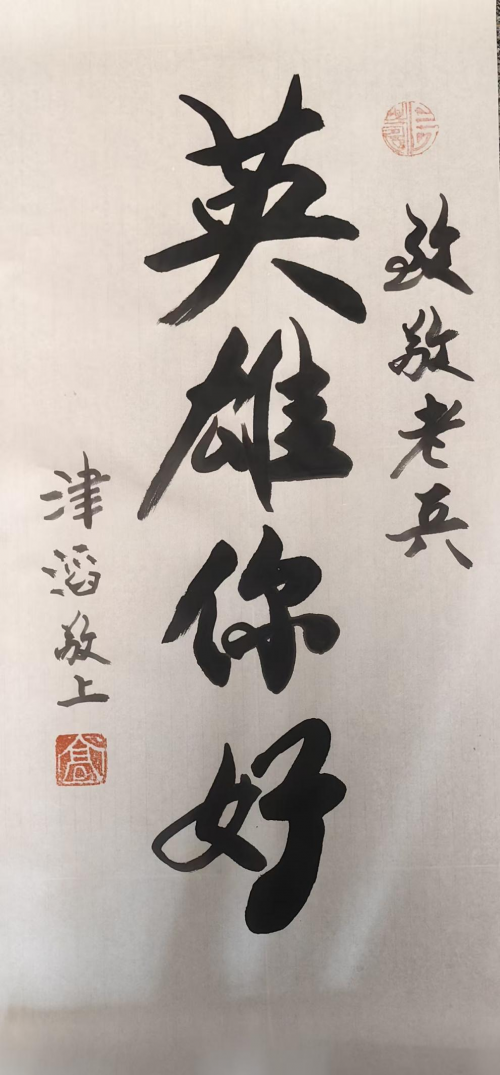 致敬老兵
英雄你好
津滔敬上